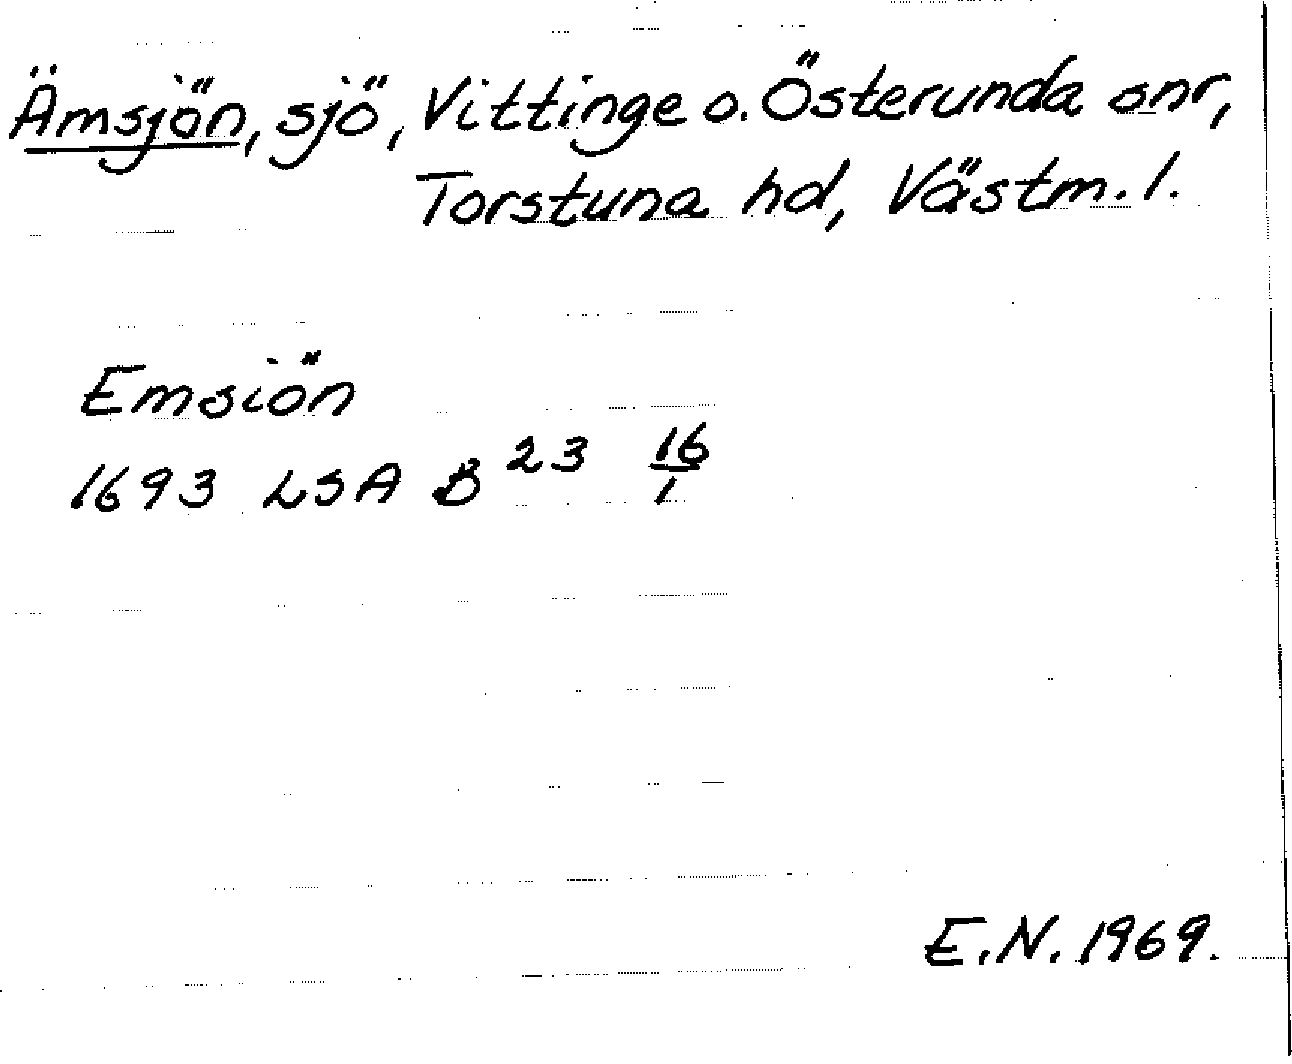 Ämsjön, sjö, Vittinge o. Österunda snr,
Torstuna hd, Västm. l.
Emsiön
1693 LSA B 23 16/1
E.N. 1969.